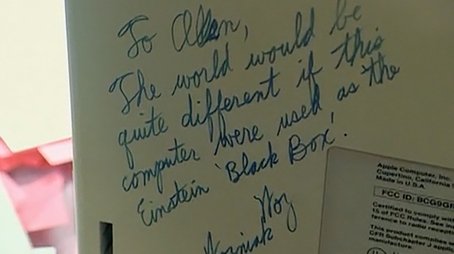 To Allen,
The world would be
quite different if this
computer were used as the
Einstein 'Black Box'.
Woz
Wozniak
Apple Computer, Inc.
Cupertino, California
Made in U.S.A.
FCC ID: BCG9GR
Certified to comply
of FCC Rules. See
ference to radio
This product
CFR Subchapter J
manufacture.